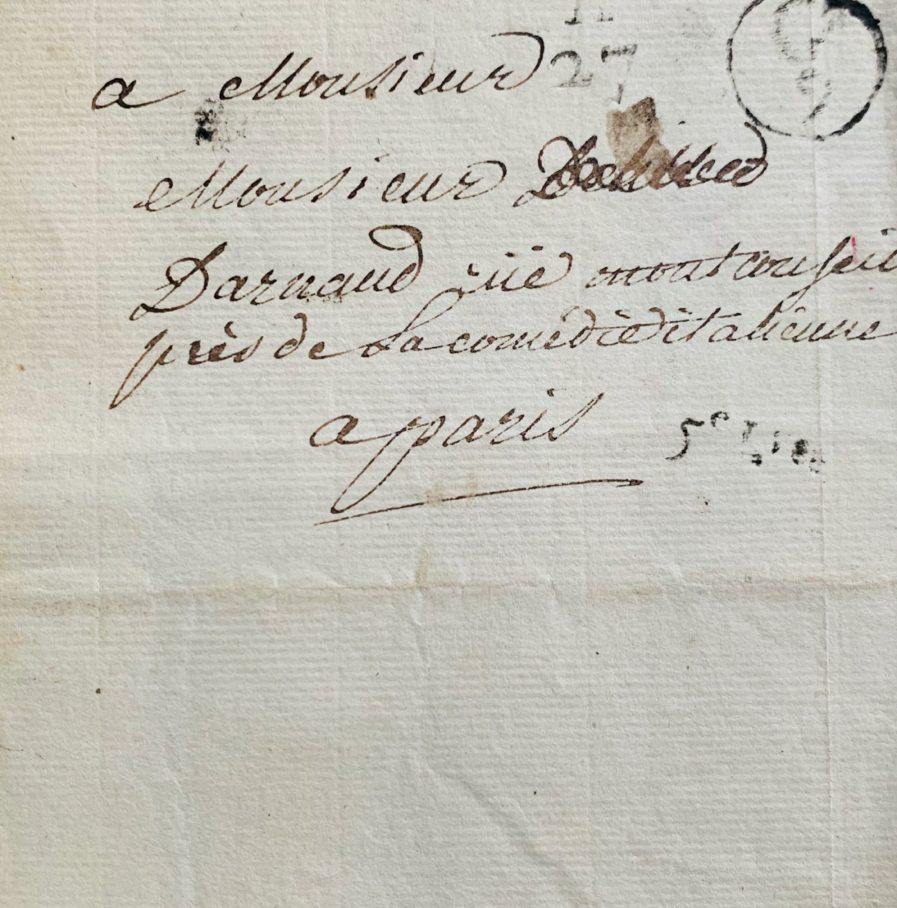 27
a Monsieur
Monsieur
Darnaud rüe montconseil
près de La comédie italienne
a paris
5e L